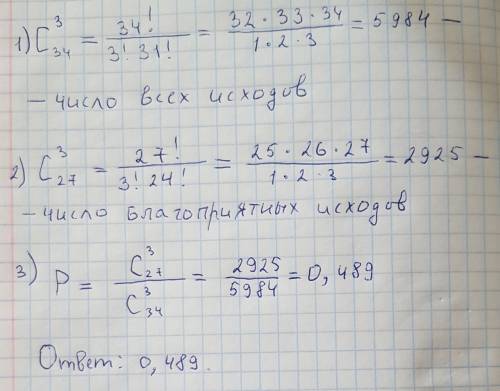 1) C³₃₄ = 34! / 3! 31! = 32 · 33 · 34 / 1 · 2 · 3 = 5984 –
– число всех исходов
2) C³₂₇ = 27! / 3! 24! = 25 · 26 · 27 / 1 · 2 · 3 = 2925 –
– число благоприятных исходов
3) P = C³₂₇ / C³₃₄ = 2925 / 5984 = 0,489
Ответ: 0,489.